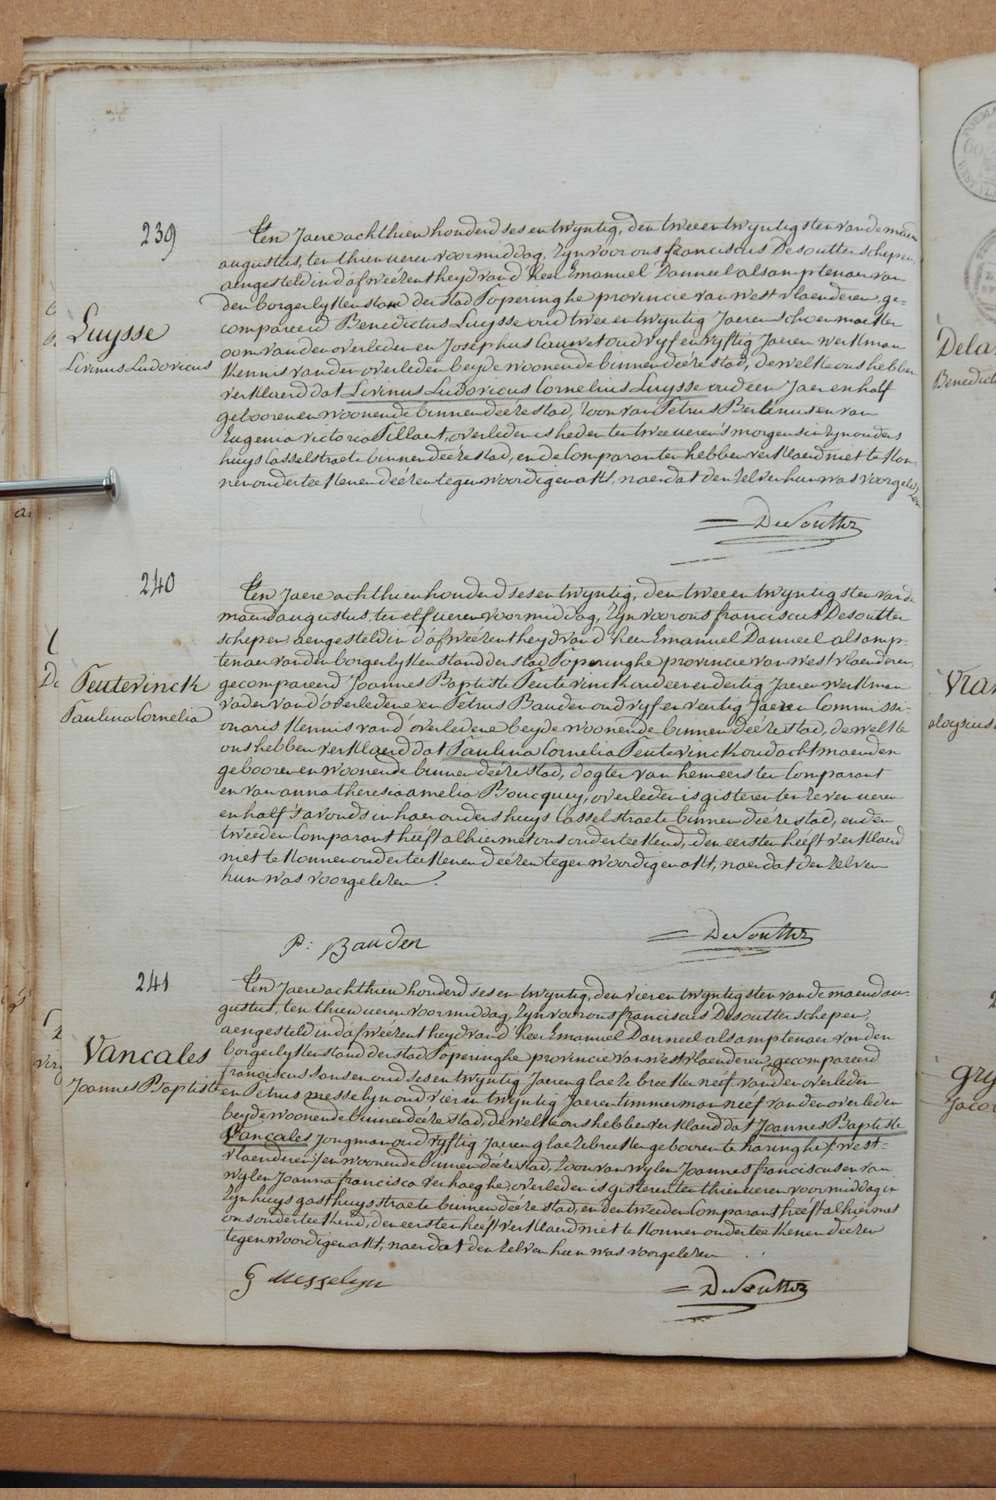 239
Luysse
Livinus Ludovicus
Ten Jaere achthien honderd ses en twyntig, den twee en twyntigsten van de maend
augustus, ten thien ueren voormiddag, zyn voor ons franciscus Desoutter schepen,
aengesteld in d'afweézentheyd van d'heer Emanuel Danneel als amptenaer van
den borgerlyken stand der stad Poperinghe provincie van westvlaenderen, ge-
compareerd Benedictus Luysse oud twee en twyntig Jaeren schoenmaeker
oom van den overleden en Josephus Cauwet oud vyf en vyftig Jaeren werkman
kennis van den overleden beyde woonende binnen deéze stad, de welke ons hebben
verklaerd dat Livinus Ludovicus Cornelius Luysse oud een Jaer en half
gebooren en woonende binnen deéze stad, Zoon van Petrus Bertinus en van
Eugenia victoria Pillaert, overleden is heden ten twee ueren 's morgens in zyn ouders
huys Casselstraete binnen deéze stad, en de Comparanten hebben verklaerd niet te kon-
nen onderteekenen deézen tegenwoordigen akt, naer dat den zelven hun was voorgelezen
DeSoutter
240
Teutevinck
Paulina Cornelia
Ten Jaere achthien honderd ses en twyntig, den twee en twyntigsten van de
maend augustus, ten elf ueren voormiddag, zyn voor ons franciscus Desoutter
schepen aengesteld in d'afweézentheyd van d'heer Emanuel Danneel als amp-
tenaer van den borgerlyken stand der stad Poperinghe provincie van westvlaenderen,
gecompareerd Joannes Baptiste Teutevinck oud een en dertig Jaeren werkman
vader van d'overledene en Petrus Bauden oud vyf en veertig Jaeren Commissi-
onaris kennis van d'overledene beyde woonende binnen deéze stad, de welke
ons hebben verklaerd dat Paulina Cornelia Teutevinck oud acht maenden
gebooren en woonende binnen deéze stad, dogter van hem eersten Comparant
en van anna theresia amelia Boucquey, overleden is gisteren ten zeven ueren
en half s'avonds in haer ouders huys Casselstraete binnen deéze stad, en den
tweeden Comparant heéft alhier met ons onderteekend, den eersten heéft verklaerd
niet te konnen onderteekenen deézen tegenwoordigen akt, naer dat den zelven
hun was voorgelezen.
P: Bauden
DeSoutter
241
Vancales
Joannes Baptiste
Ten Jaere achthien honderd ses en twyntig, den vier en twyntigsten van de maend au-
gustus, ten thien ueren voormiddag, zyn voor ons franciscus Desoutter schepen,
aengesteld in d'afweézentheyd van d'heer Emanuel Danneel als amptenaer van den
borgerlyken stand der stad Poperinghe provincie van westvlaenderen, gecompareerd
franciscus Sansen oud ses en twyntig Jaeren glaezebreeker neéf van den overleden
en Petrus messelyn oud vier en twyntig Jaeren timmerman neéf van den overleden
beyde woonende binnen deéze stad, de welke ons hebben verklaerd dat Joannes Baptiste
Vancales Jongman oud vyftig Jaeren glaezebreeker gebooren te haringhe (west-
vlaenderen) en woonende binnen deéze stad, Zoon van wylen Joannes franciscus en van
wylen Joanna francisca verhaeghe, overleden is gisteren ten thien ueren voormiddag in
zyn huys gasthuysstraete binnen deéze stad, en den tweeden Comparant heéft alhier met
ons onderteekend, den eersten heéft verklaerd niet te konnen onderteekenen deézen
tegenwoordigen akt, naer dat den zelven hun was voorgelezen
Messelyn
DeSoutter